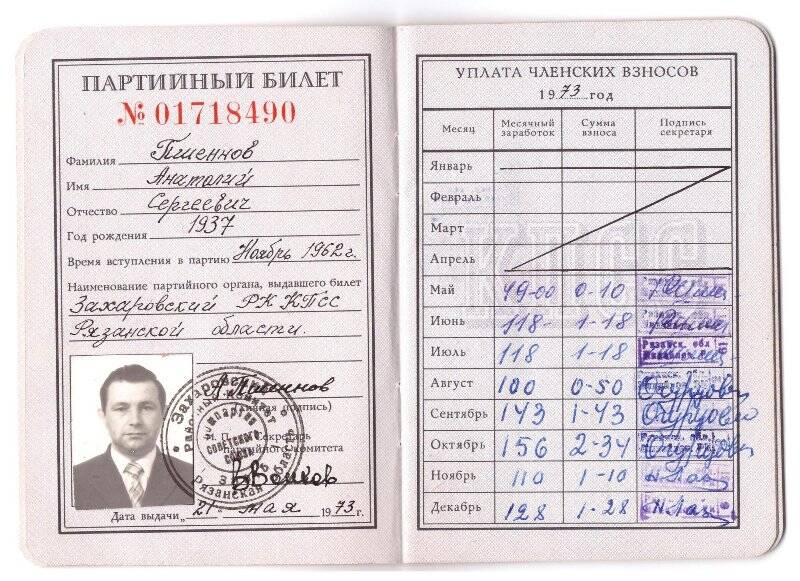 ПАРТИЙНЫЙ БИЛЕТ
№ 01718490
Фамилия Пшеннов
Имя Анатолий
Отчество Сергеевич
Год рождения 1937
Время вступления в партию Ноябрь 1962 г.
Наименование партийного органа, выдавшего билет
Захаровский РК КПСС
Рязанской области.
(личная подпись)
М. П. Секретарь
партийного комитета
Волков
Дата выдачи „21“ мая 1973 г.
УПЛАТА ЧЛЕНСКИХ ВЗНОСОВ
1973 год
Месяц Месячный заработок Сумма взноса Подпись секретаря
Январь
Февраль
Март
Апрель
КПСС
Май 49-00 0-10
Июнь 118- 1-18
Июль 118 1-18
Август 100 0-50
Сентябрь 143 1-43
Октябрь 156 2-34
Ноябрь 110 1-10
Декабрь 128 1-28